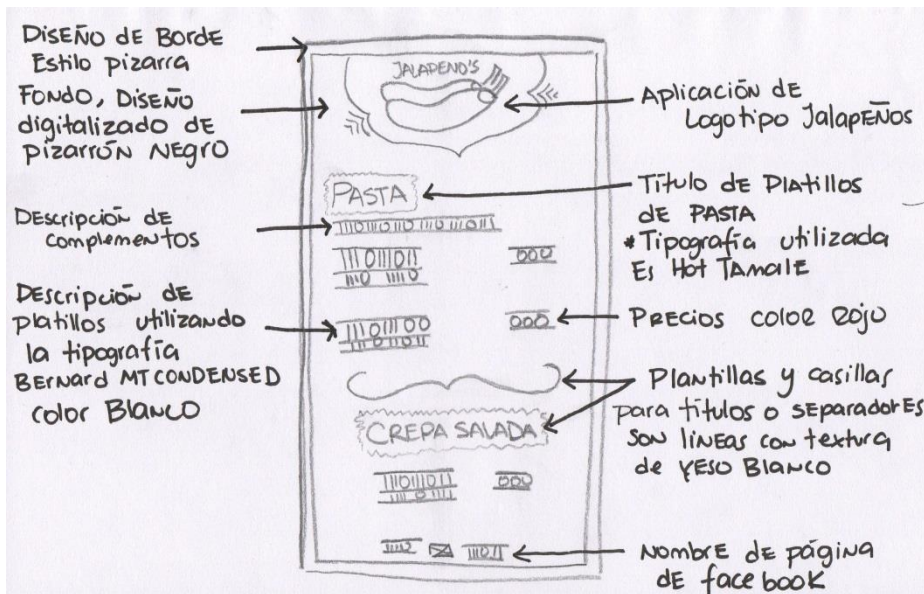 Diseño de Borde
Estilo pizarra
Fondo, Diseño
digitalizado de
Pizarrón Negro
Descripción de
complementos
Descripción de
platillos utilizando
la tipografía
Bernard MT Condensed
color Blanco
JALAPEÑO'S
PASTA
CREPA SALADA
Aplicación de
Logotipo Jalapeños
Título de Platillos
de PASTA
*Tipografía utilizada
Es Hot Tamale
Precios color rojo
Plantillas y casillas
para títulos o separadores
son líneas con textura
de yeso Blanco
Nombre de página
de facebook